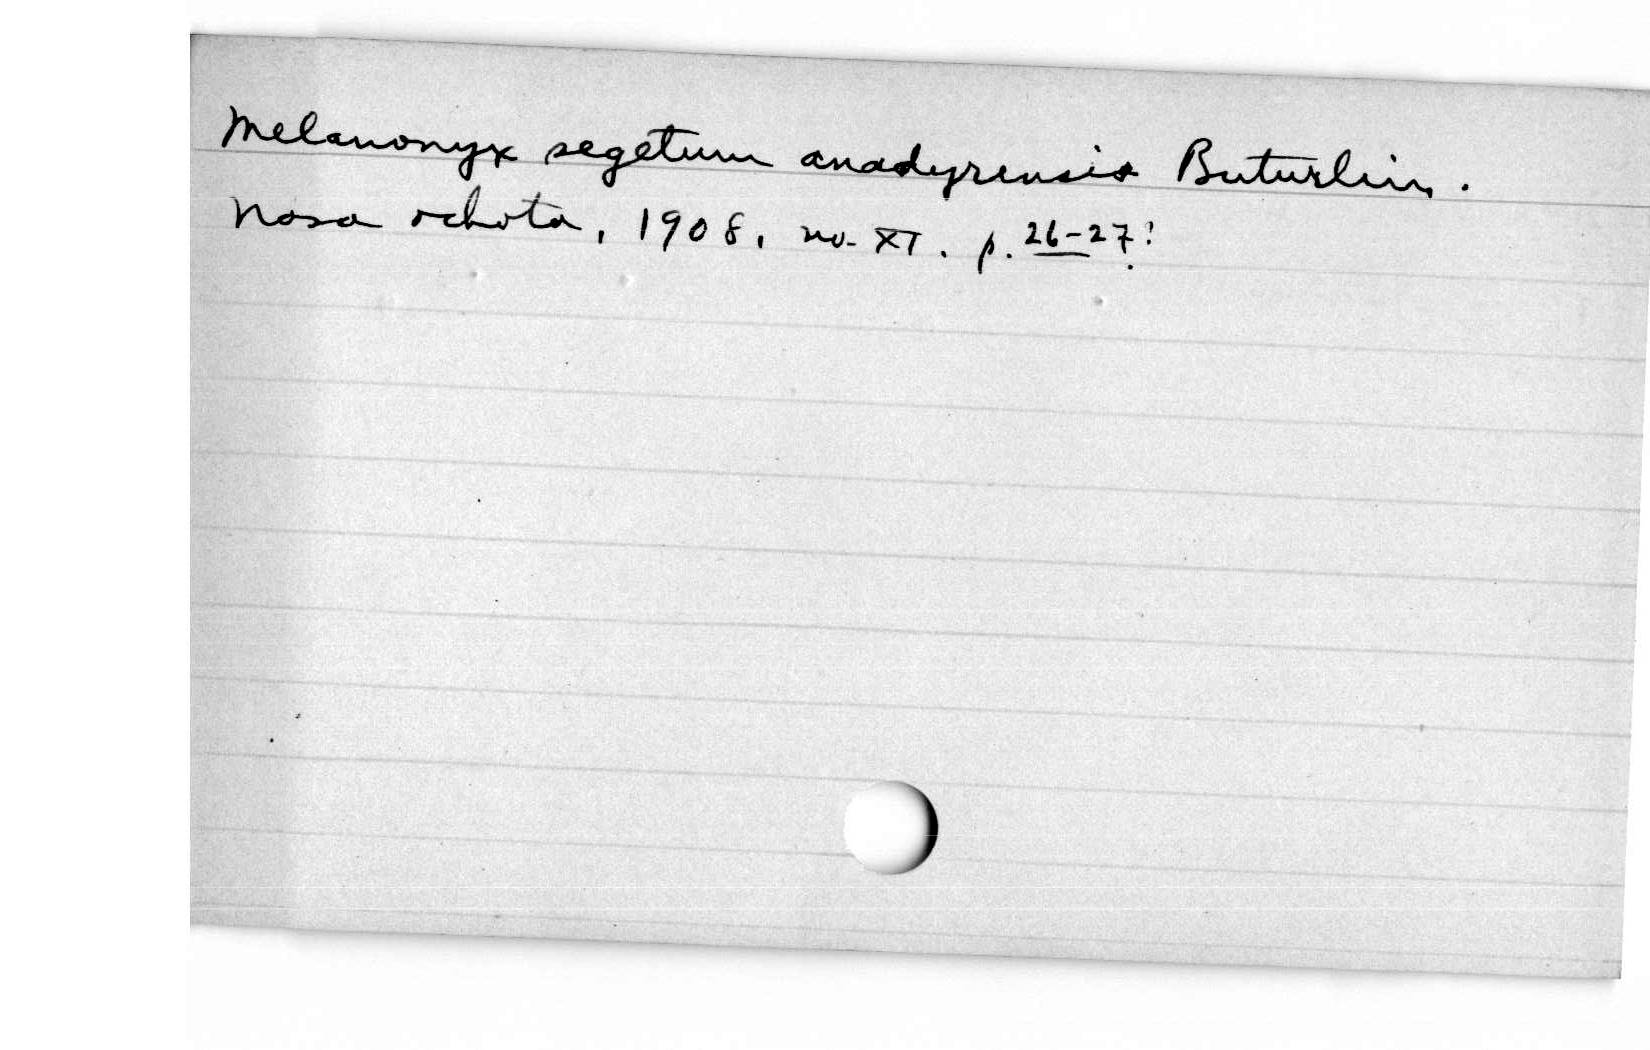 Melanonyx segetum anadyrensis Buturlin.
Nasa ochota, 1908, no. XI. p. 26-27?